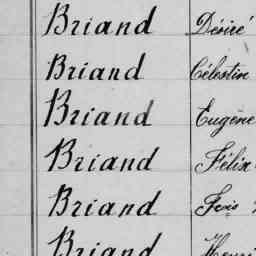 Briand Désiré
Briand Célestin
Briand Eugène
Briand Félix
Briand Fcis
Briand Henri